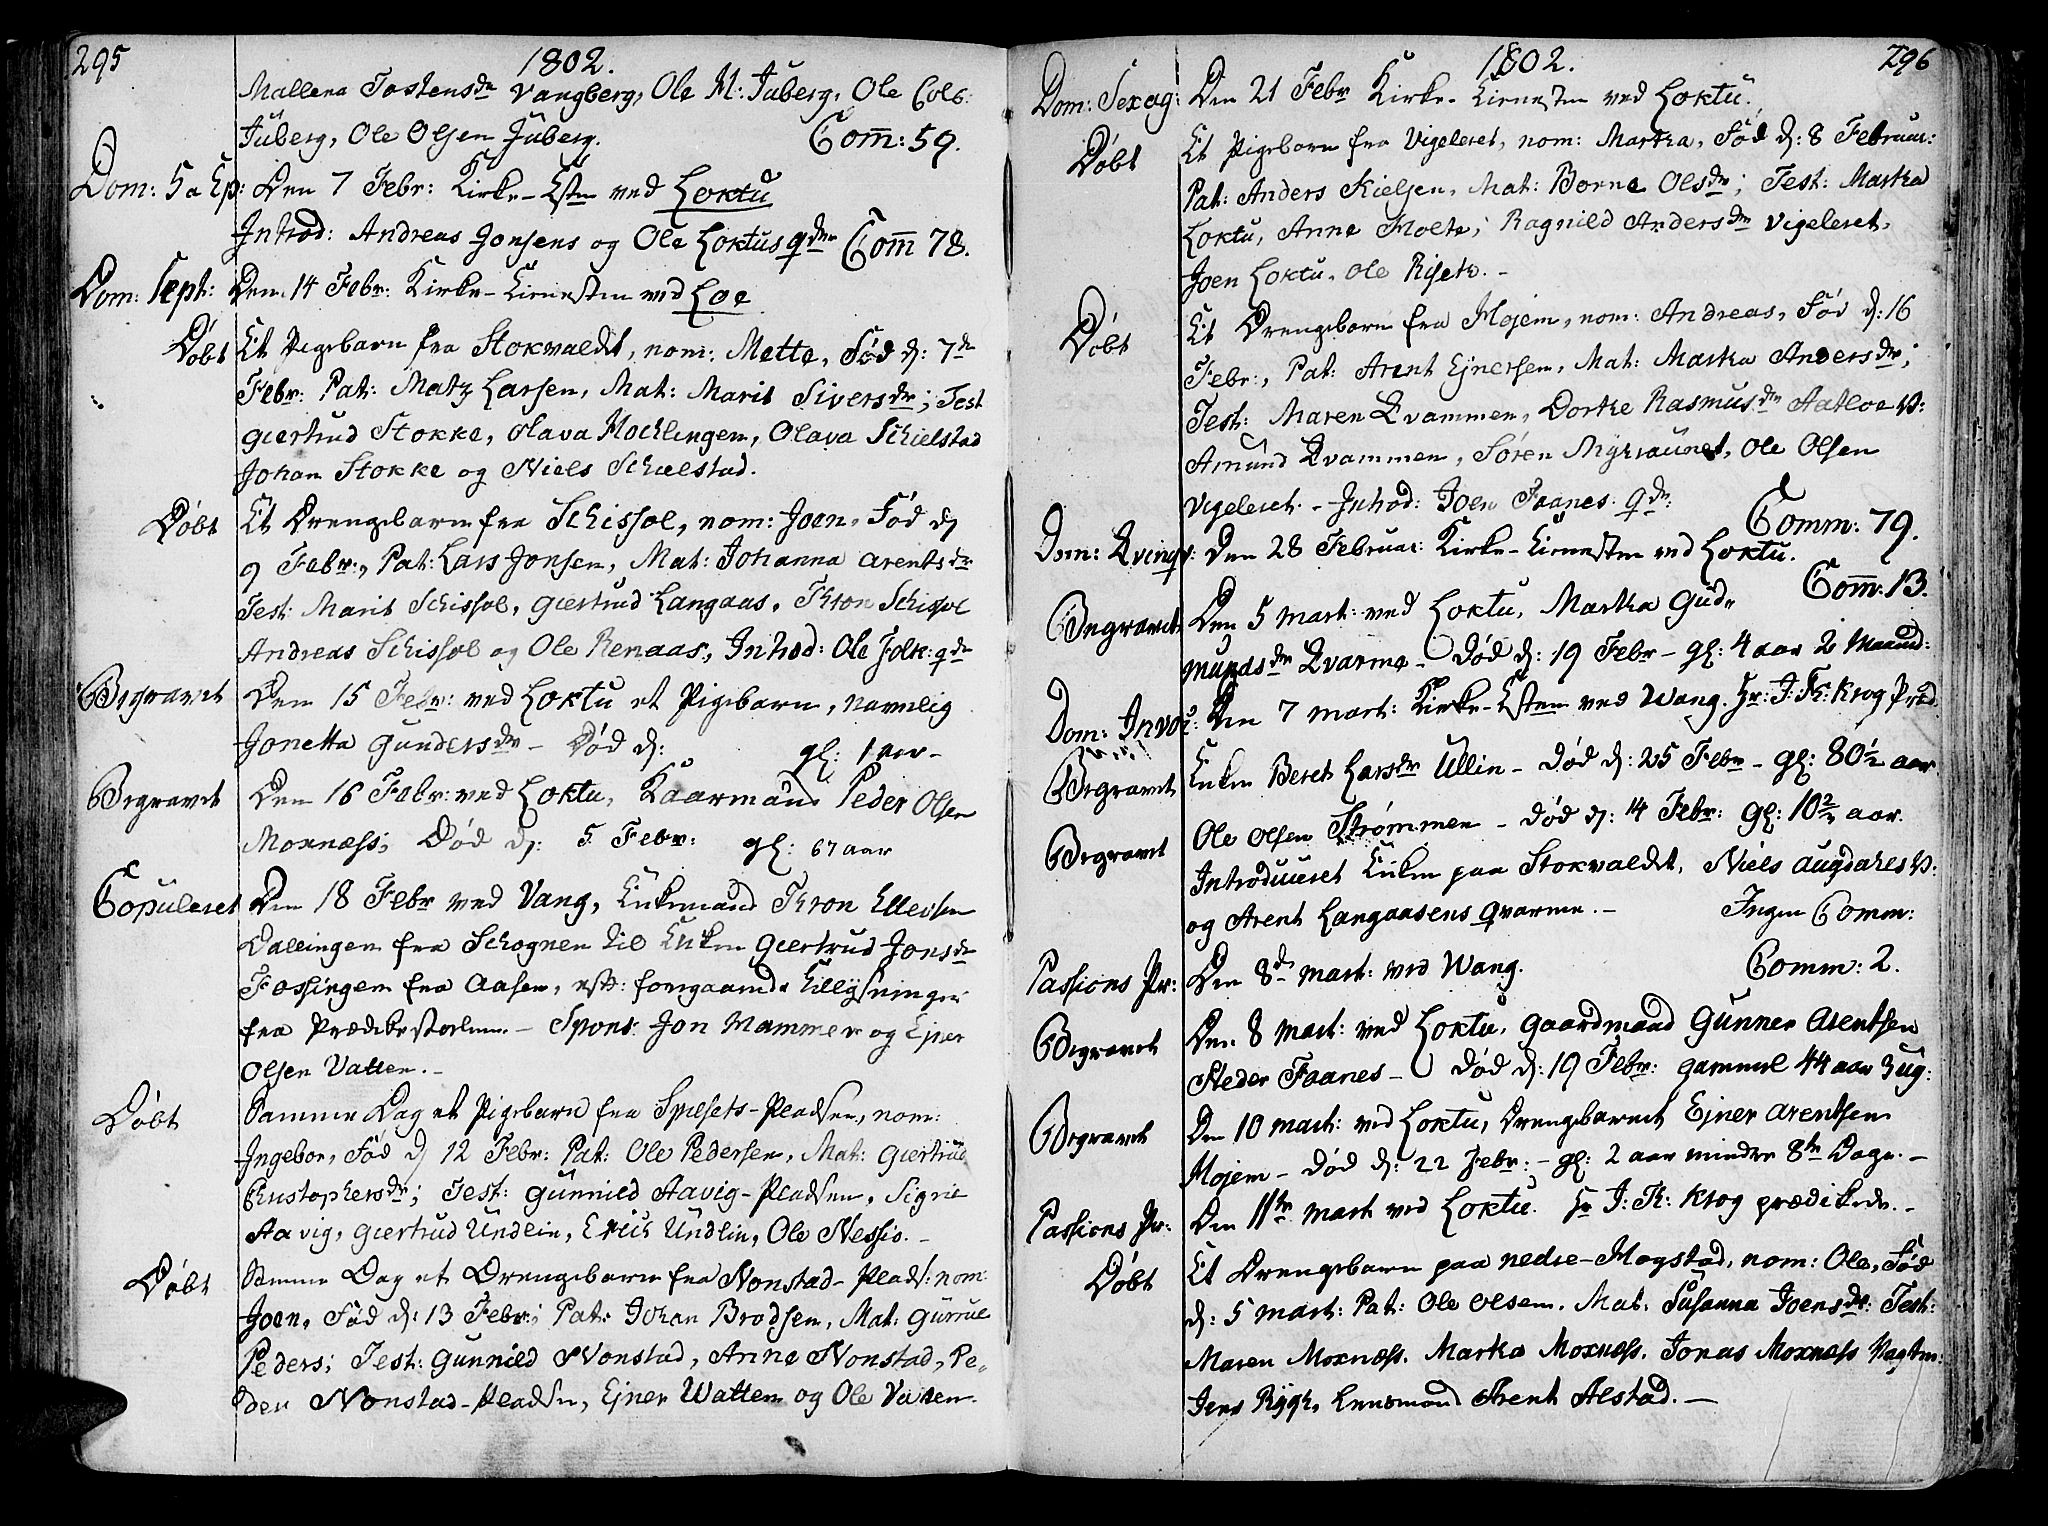 295
1802.
Mallena Tostensdr Vangberg, Ole M: Juberg, Ole Cols:
Juberg, Ole Olsen Juberg. Com̅: 59.
Dom: 5 a Ep: Den 7 Febr: Kirke-Tiesten ved Loktu
Introd: Andreas Jonsens og Ole Loktus qdr Com̅ 78.
Dom: Sept: Den 14 Febr: Kirke-Tienesten ved Loe
Døbt Et Pigebarn fra Stokvaldt, nom: Mette, Fød d: 7de
Febr: Pat: Matz Larsen, Mat: Marit Siversdr; Test
Giertrud Stokke, Olava Mochlingen, Olava Schielstad
Johan Stokke og Niels Schielstad.
Døbt Et Drengebarn fra Schissol, nom: Joen, Fød d
9 Febr:, Pat: Lars Jonsen, Mat: Johanna Arentsdr
Test: Marit Schissol, Giertrud Langaas, Thron Schissol
Andreas Schissol og Ole Renaas, Introd: Ole Folk: qdr
Begravet Den 15 Febr: ved Loktu et Pigebarn, navnlig
Jonetta Gundersdr - Død d: gl: 1 aar -
Begravet Den 16 Febr: ved Loktu, Kaarmand Peder Olsen
Moxnæss; Død d: 5 Febr: gl: 67 aar
Copuleret Den 18 Febr ved Vang, Enkemand Thron Ellevsen
Dallingen fra Schognen til Enken Giertrud Jonsdr
Fossingen fra Aasen, eft: foregaaende Tillysninger
fra Prædikestolen. - Spons: Jon Mammen og Ejner
Olsen Vatten. -
Døbt Samme Dag et Pigebarn fra Spilsets-Pladsen, nom:
Ingebor, Fød d 12 Febr: Pat: Ole Pedersen, Mat: Giertrud
Christophersdr; Test: Gunnild Aavig-Pladsen, Signe
Aavig, Giertrud Undlin, Erich Undlin, Ole Nessio. -
Døbt Samme Dag et Drengebarn fra Nonstad-Plads: nom:
Joen, Fød d: 13 Febr:; Pat: Johan Brodsen, Mat: Gurrue
Peders; Test: Gunnild Nonstad, Anne Nonstad, Pe-
der Nonstad-Pladsen, Ejner Watten og Ole Vatten.
1802. 296
Dom: Sexag: Den 21 Febr Kirke-Tienesten ved Loktu.
Døbt Et Pigebarn fra Vigeleret, nom: Martha, Fød d: 8 Februar:
Pat: Anders Kielsen, Mat: Borne Olsdr; Test: Martha
Loktu, Anne Molte; Ragnild Andersdr Vigeleret,
Joen Loktu, Ole Riseth. -
Døbt Et Drengebarn fra Mojem, nom: Andreas, Fød d: 16
Febr:, Pat: Arent Ejnersen, Mat: Martha Andersdr;
Test: Maren Qvammen, Dorthe Rasmusdr Aatloe P:
Amund Qvammen, Søren Myhraunet, Ole Olsen
Vigeleret. - Introd: Joen Faanes qdr: Comm: 79.
Dom: Qvinqv: Den 28 Februar: Kirke-Tienesten ved Loktu.
Com̅: 13.
Begravet Den 5 Mart: ved Loktu, Martha Gud-
mundsdr Qvarme - Død d: 19 Febr - gl: 4 aar 2 Maaned:
Dom: Invoc: Den 7 Mart: Kirke-Tiesten ved Wang. Hr: J: Th: Krog Præd
Begravet Enken Beret Larsdr Ullin - Død d: 25 Febr - gl: 80½ aar
Begravet Ole Olsen Strømmen - Død d: 14 Febr: gl: 10 2/ aar.
Introduceret Enken paa Stokvaldt, Niels Augdahls P:
og Arent Langaasens Qvarme. - Ingen Comm:
Passions Pr: Den 8de Mart: ved Wang. Comm: 2.
Begravet Den 8 Mart: ved Loktu, Gaardmand Gunner Arentsen
Neder Faanes - Død d: 19 Febr: gammel 44 aar 3 Ug:
Begravet Den 10 Mart: ved Loktu, Drengebarnet Ejner Arentsen
Mojem - Død d: 22 Febr: - gl: 2 aar mindre 8te Dage. -
Passions Pr: Den 11te Mart ved Loktu. Hr J: Th: Krog prædikede. -
Døbt Et Drengebarn paa Nedre-Mogstad, nom: Ole, Fød
d: 5 Mart: Pat: Ole Olsen, Mat: Susanna Joensdr: Test:
Maren Moxnæss, Martha Moxness, Jonas Moxness Vagtm:
Jens Rygh, Lensmand Arent Alstad. -